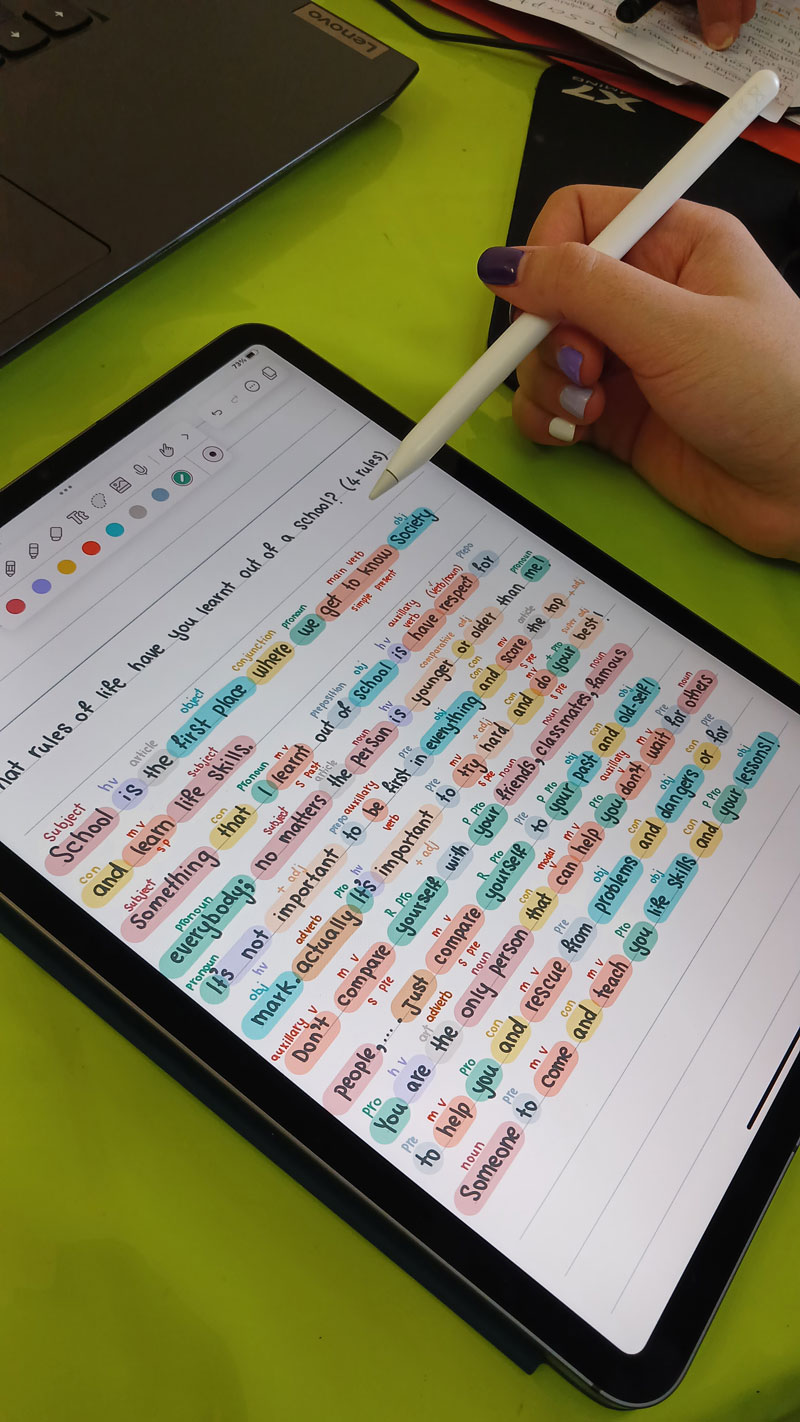 Lenovo
X7
GAMING
73%
hat rules of life have you learnt out of a school? (4 rules)
Subject hv article object conjunction pronoun main verb obj
School is the first place where we get to know Society
simple present
con m v Subject
and learn life skills.
s p
Subject con Pronoun m v preposition obj hv auxillary verb (verb/noun) prepo
Something that I learnt out of school is have respect for
s past
pronoun Subject article noun hv comparative adj pronoun
everybody; no matters the person is younger or older than me!
Pronoun + adj prepo auxillary pre con m v article + adj
It's not important to be first in everything and score the top
verb s pre
obj hv adverb pro hv pre m v + adj con m v super adj
mark. actually It's important to try hard and do your best!
+ adj s pre
auxillary v m v R Pro pre P Pro noun noun noun
Don't compare yourself with your friends, classmates, famous
s pre
m v R Pro Pre P Pro obj con obj
people,... Just compare yourself to your past and old-self!
adverb s pre
pro h v art noun con model v m v pro auxillary m v pre noun
You are the only person that can help you don't wait for others
pre m v pro con m v pre obj con obj con pre
to help you and rescue from problems and dangers or for
noun pre m v con m v pro obj con P Pro obj
Someone to come and teach you life skills and your lessons!